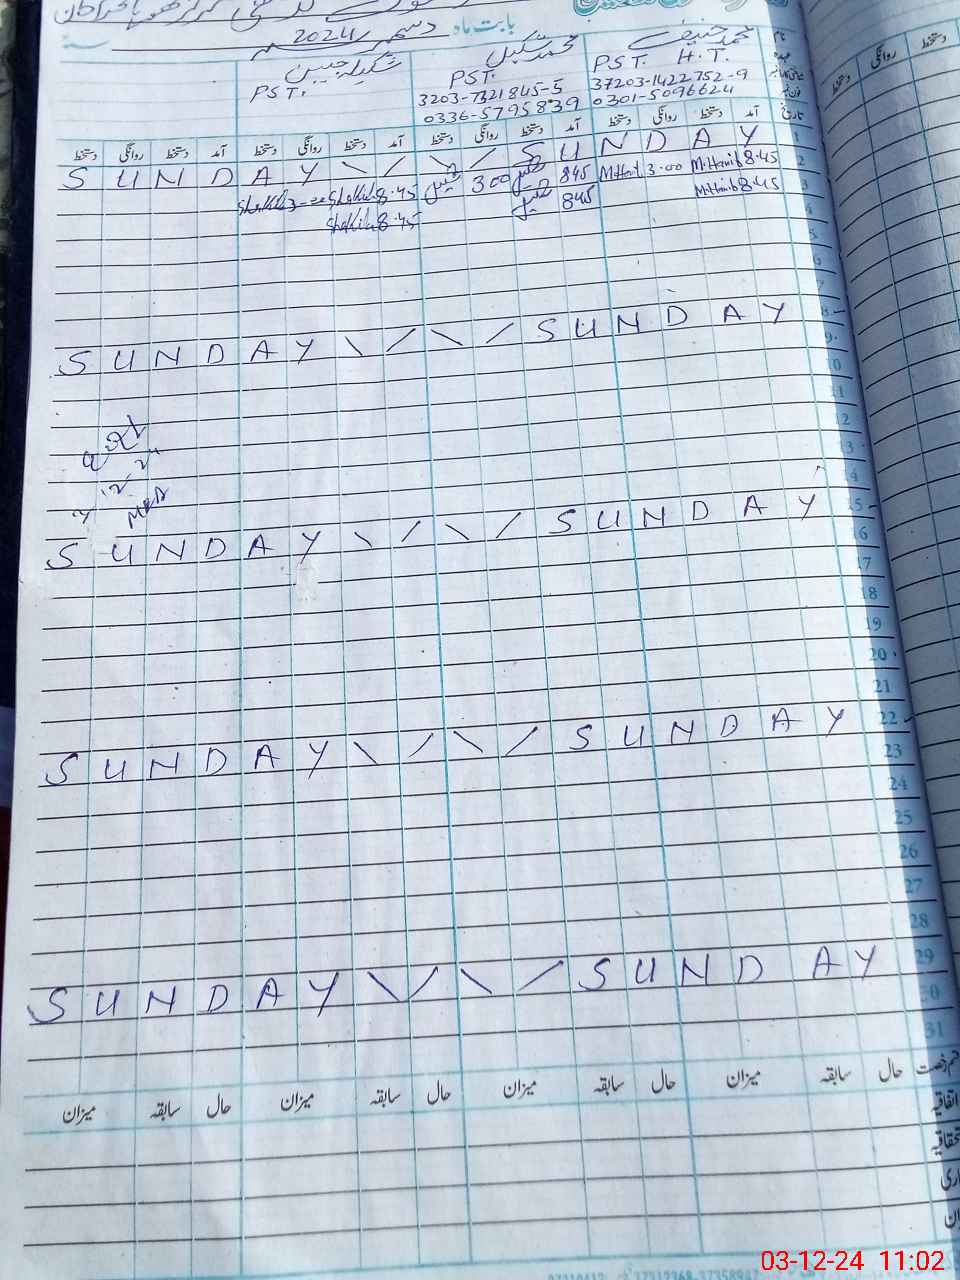 بابت ماہ دسمبر 2024 سنہ
نام محمد حنیف محمد شکیل شکیلہ جبین
عہدہ PST. H.T. PST. PST.
37203-1422752-9
0301-5096624
0336-5795839
تاریخ آمد دستخط روانگی دستخط آمد دستخط روانگی دستخط آمد دستخط روانگی دستخط
1 SUNDAY \ / \ / SUNDAY
2 8.45 M.Hanif 3.00 M.Hanif 845 شکیل 300 شکیل 8.45 Shakila 3-00 Shakila
3 8.45 M.Hanif 845 شکیل 8.45 Shakila
4
5
6
7
8 SUNDAY \ / \ / SUNDAY
9
10
11
12
13
14
15 SUNDAY \ / \ / SUNDAY
16
17
18
19
20
21
22 SUNDAY \ / \ / SUNDAY
23
24
25
26
27
28
29 SUNDAY \ / \ / SUNDAY
30
31
حال سابقہ میزان حال سابقہ میزان حال سابقہ میزان
اتفاقیہ
03-12-24 11:02